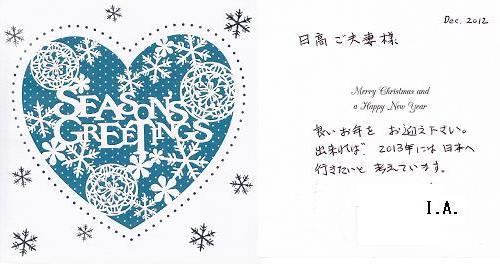 SEASONS
GREETINGS
Dec. 2012
日高ご夫妻様
Merry Christmas and
a Happy New Year
良いお年を お迎え下さい。
出来れば 2013年には 日本へ
行きたいと 考えています。
I.A.